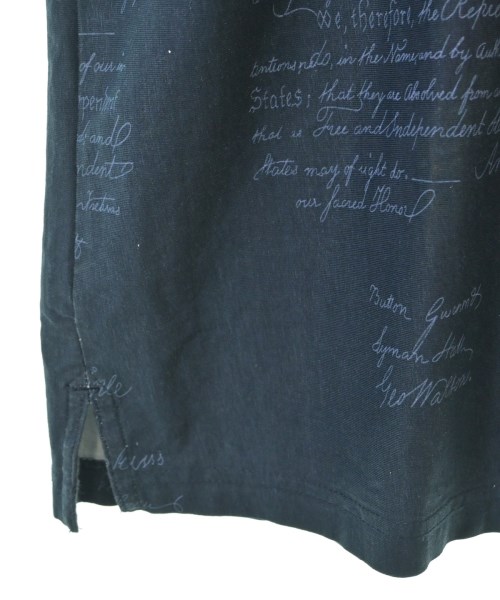 We, therefore, the Repre
of our in
tentions nds, in the Name, and by Auth
States; that they are Absolved from a
and
that is Free and Independent
ndent
States may of right do.
our Sacred Honor
of
Button Gwinnett
Lyman Hall
Geo Walton
kins